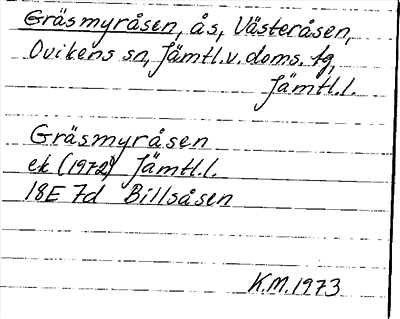 Gräsmyråsen, ås, Västeråsen,
Ovikens sn, Jämtl.v.doms. tg,
Jämtl.l.
Gräsmyråsen
ek (1972) Jämtl.l.
18E 7d Billsåsen
K.M.1973